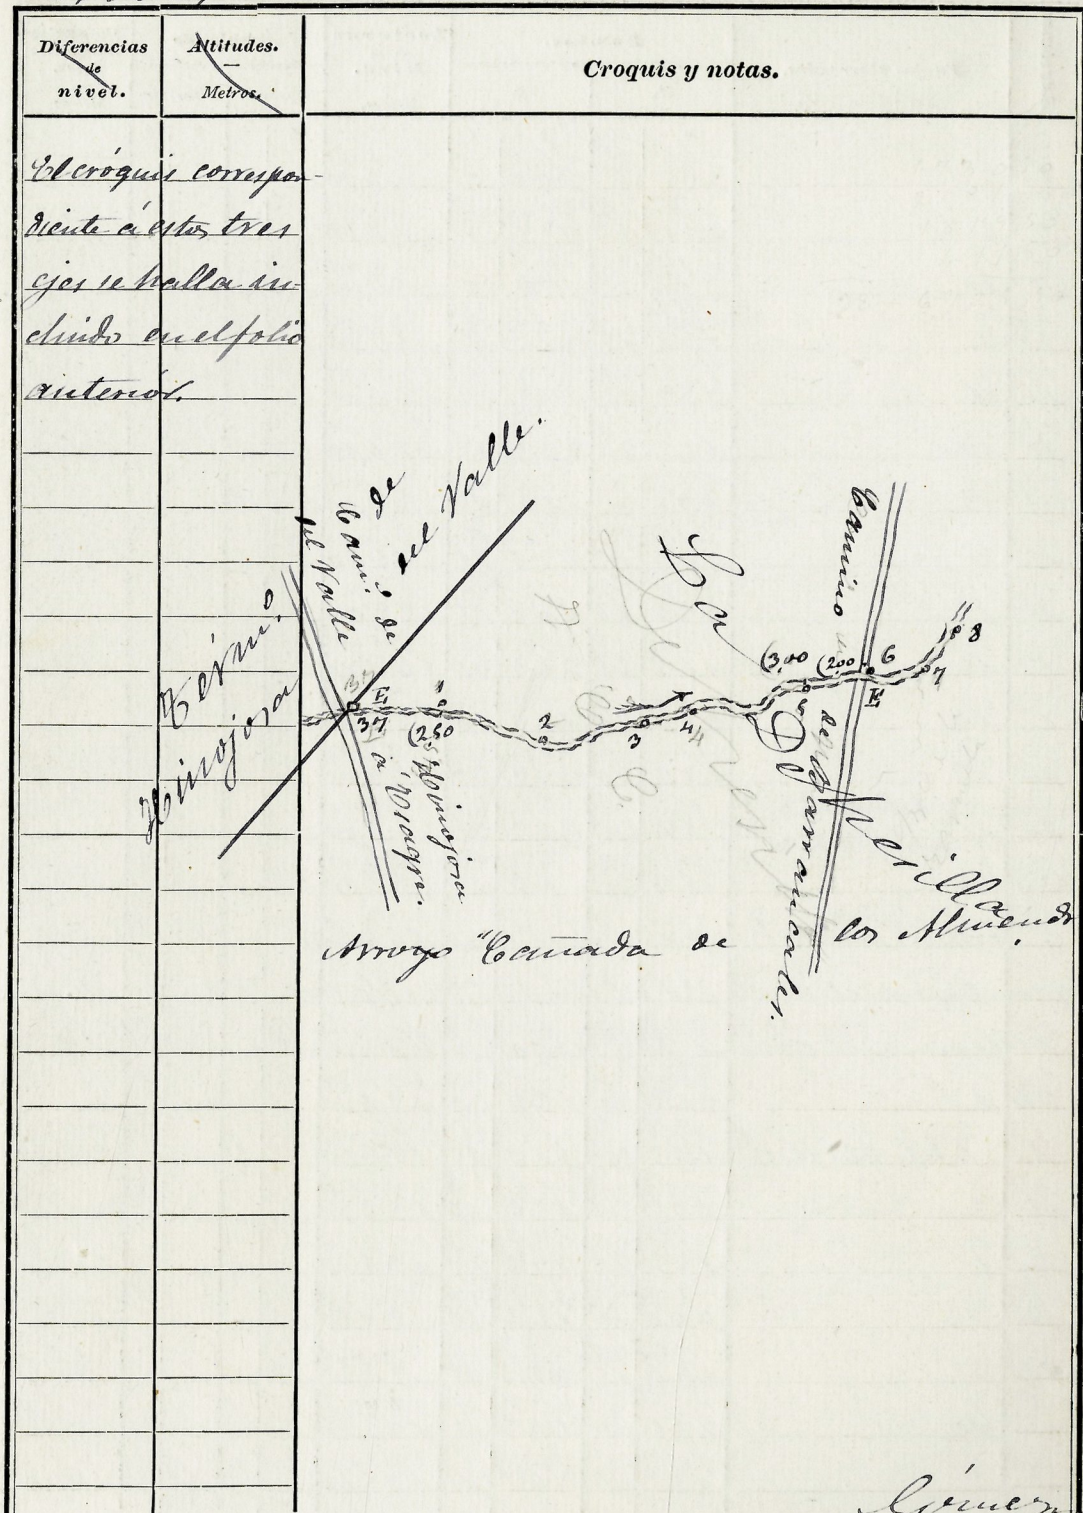 Diferencias
de
nivel.
Altitudes.
Metros.
Croquis y notas.
El cróquis correspon-
diente á estos tres
ejes se halla in-
cluido en el folio
anterior.
Térmo. de
Hinojosa del Valle.
Camo. de Hinojosa
del Valle á Usagre.
37
E
37
1
(2,50
2
3
4
5
(3,00
(2,00
6
E
7
8
La Dehesilla
Camino de Barrancales.
Arroyo "Cañada de los Almendr
Gómez